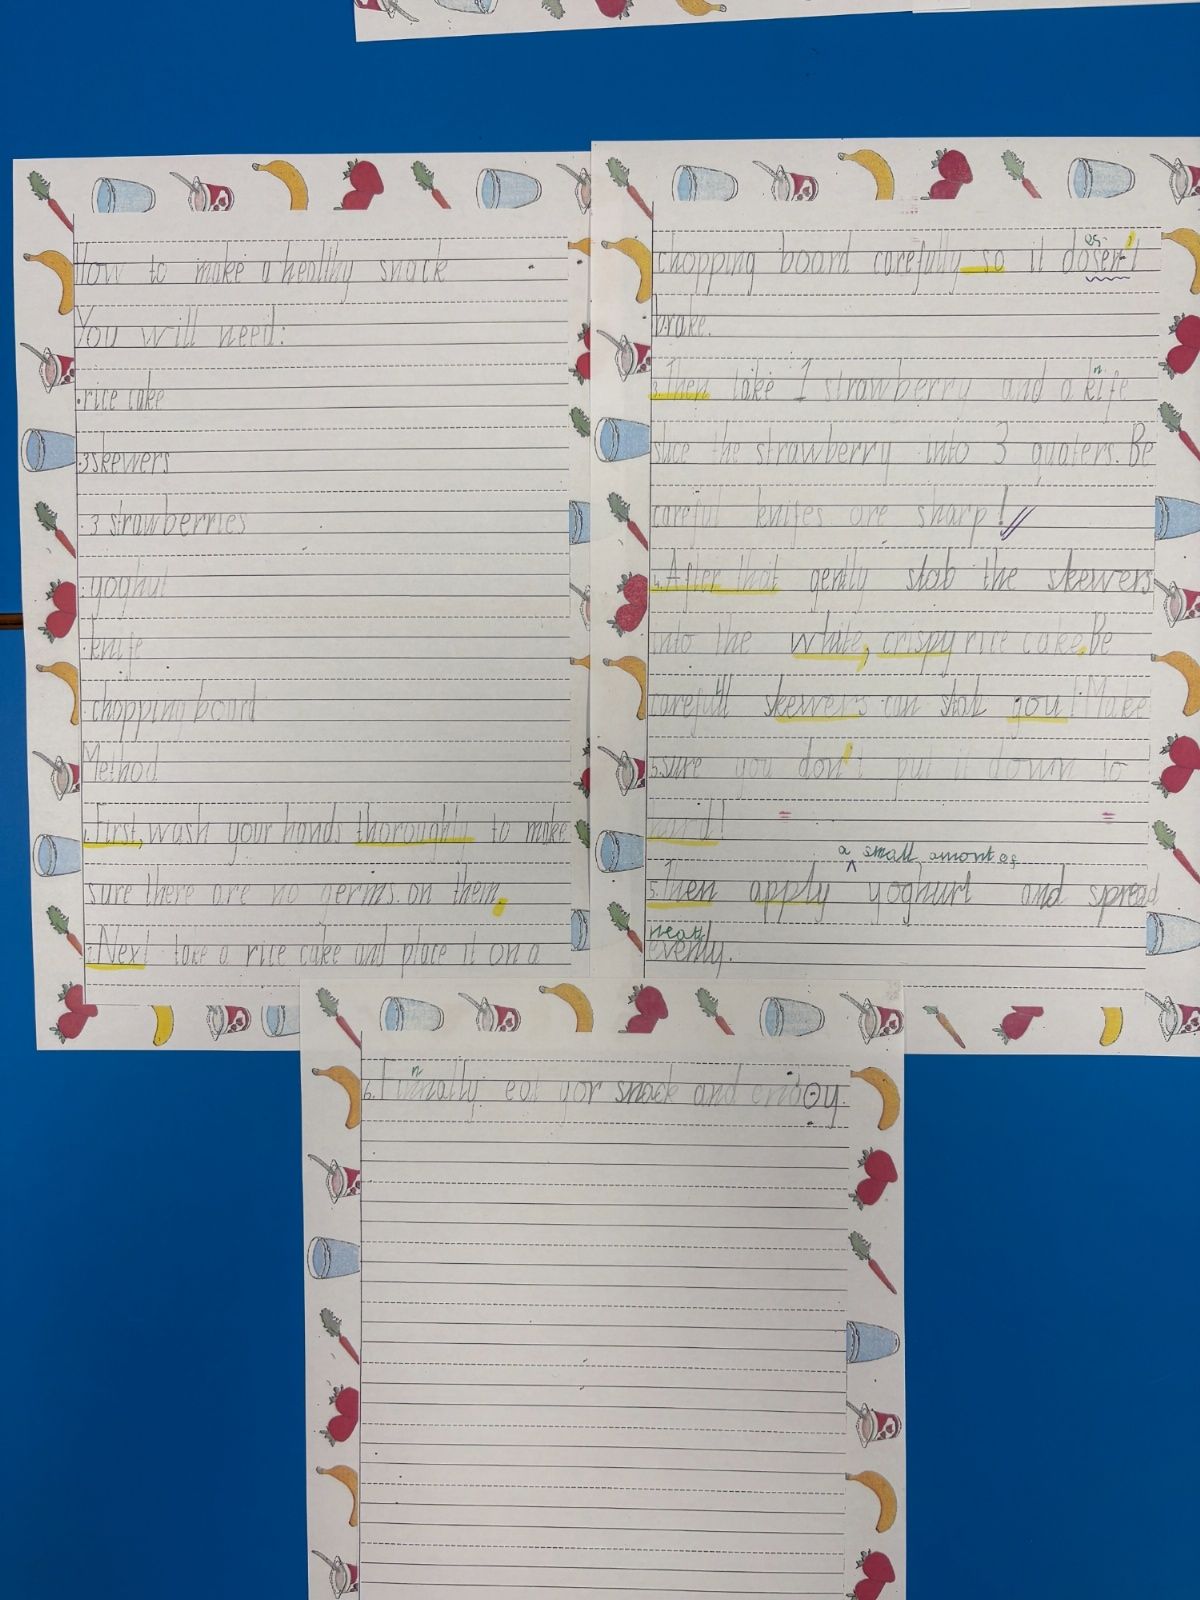 How to make a healthy snack
You will need:
·rice cake
·3 skewers
·3 strawberries
·yoghut
·knife
·chopping board
Method
1.First, wash your hands thoroughly to make
sure there are no germs on them.
2.Next take a rice cake and place it on a
es '
chopping board carefully so it dosen't
brake.
n
3.Then take 1 strawberry and a kife
slice the strawberry into 3 quaters. Be
careful knifes are sharp!
4.After that gently stab the skewers
into the white, crispy rice cake. Be
carefull skewers can stab you! Make
5.sure you don't put it down to
a small amont of
5.Then apply yoghurt and spread
neatl
evenly.
n
6.Finnally eat yor snack and enjoy.